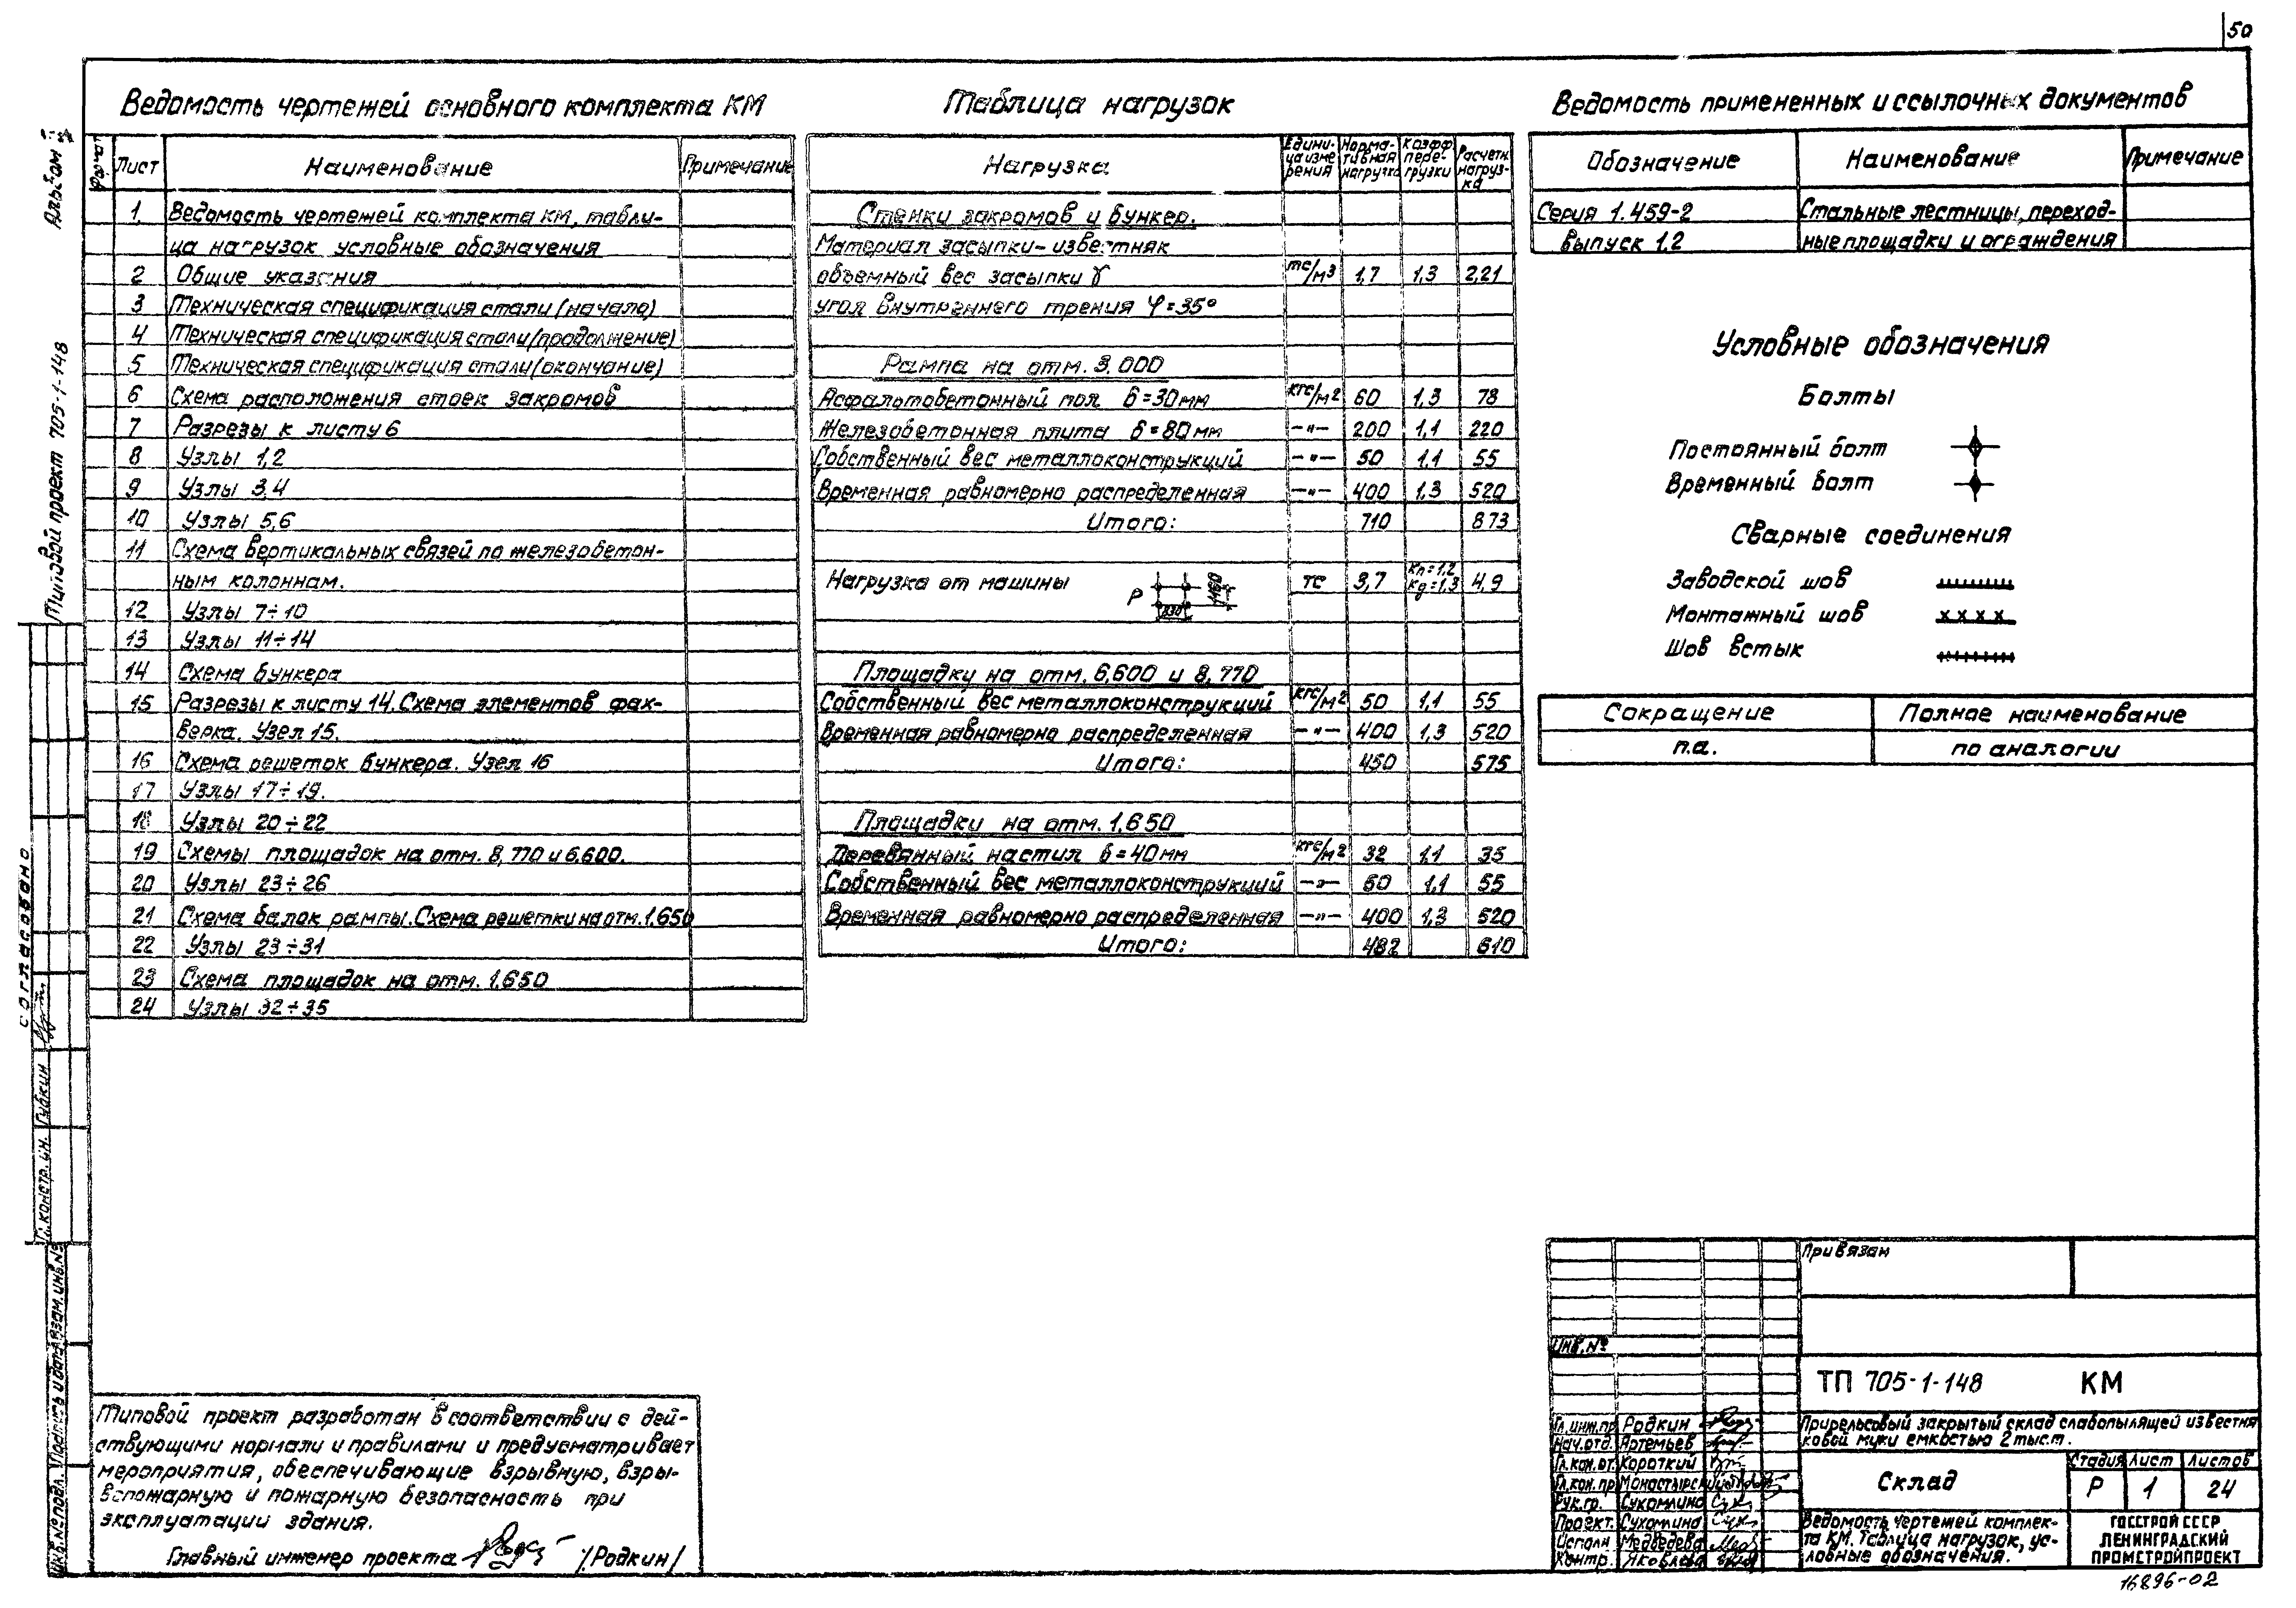 50
Альбом
Типовой проект 705-1-148
Ведомость чертежей основного комплекта КМ
Формат Лист Наименование Примечание
1 Ведомость чертежей комплекта КМ, табли-
ца нагрузок условные обозначения
2 Общие указания
3 Техническая спецификация стали (начало)
4 Техническая спецификация стали (продолжение)
5 Техническая спецификация стали (окончание)
6 Схема расположения стоек закромов
7 Разрезы к листу 6
8 Узлы 1,2
9 Узлы 3,4
10 Узлы 5,6
11 Схема вертикальных связей по железобетон-
ным колоннам.
12 Узлы 7÷10
13 Узлы 11÷14
14 Схема бункера
15 Разрезы к листу 14. Схема элементов фах-
верка. Узел 15.
16 Схема решеток бункера. Узел 16
17 Узлы 17÷19.
18 Узлы 20÷22
19 Схемы площадок на отм. 8,770 и 6,600.
20 Узлы 23÷26
21 Схема балок рампы. Схема решетки на отм. 1,650
22 Узлы 23÷31
23 Схема площадок на отм. 1,650
24 Узлы 32÷35
Таблица нагрузок
Нагрузка Едини-ца изме рения Норма-тивная нагрузка Коэфф пере-грузки Расчетн. нагруз-ка
Стенки закромов и бункер.
Материал засыпки - известняк
объемный вес засыпки γ тс/м3 1,7 1,3 2,21
угол внутреннего трения φ=35°
Рампа на отм. 3,000
Асфальтобетонный пол δ=30мм кгс/м2 60 1,3 78
Железобетонная плита δ=80мм —"— 200 1,1 220
Собственный вес металлоконструкций —"— 50 1,1 55
Временная равномерно распределенная —"— 400 1,3 520
Итого: 710 873
Нагрузка от машины P 830 1460 тс 3,7 Кп=1,2 Кд=1,3 4,9
Площадку на отм. 6,600 и 8,770
Собственный вес металлоконструкций кгс/м2 50 1,1 55
Временная равномерно распределенная —"— 400 1,3 520
Итого: 450 575
Площадку на отм. 1,650
Деревянный настил δ=40мм кгс/м2 32 1,1 35
Собственный вес металлоконструкций —"— 50 1,1 55
Временная равномерно распределенная —"— 400 1,3 520
Итого: 482 610
Ведомость примененных и ссылочных документов
Обозначение Наименование Примечание
Серия 1.459-2 Стальные лестницы, переход-
выпуск 1.2 ные площадки и ограждения
Условные обозначения
Болты
Постоянный болт
Временный болт
Сварные соединения
Заводской шов
Монтажный шов
Шов встык
Сокращение Полное наименование
п.а. по аналогии
Согласовано
Гл.констр.ин. Губкин
Взам.инв.№
Подпись и дата
Инв.№ подл.
Типовой проект разработан в соответствии с дей-
ствующими нормали и правилами и предусматривает
мероприятия, обеспечивающие взрывную, взры-
вспожарную и пожарную безопасность при
эксплуатации здания.
Главный инженер проекта /Родкин/
Привязан
Инв.№
ТП 705-1-148 КМ
Гл.инж.пр Родкин
Нач.отд. Артемьев
Гл.кон.от. Короткий
Гл.кон.пр Монастырск
Рук.гр. Сухомлина
Проект. Сухомлина
Исполн Медведева
Контр. Яковлева
Прирельсовый закрытый склад слабопылящей известня
ковой муки емкостью 2 тыс.т.
Склад
Стадия Лист Листов
Р 1 24
Ведомость чертежей комплек-
та КМ. Таблица нагрузок, ус-
ловные обозначения.
ГОССТРОЙ СССР
ЛЕНИНГРАДСКИЙ
ПРОМСТРОЙПРОЕКТ
16896-02